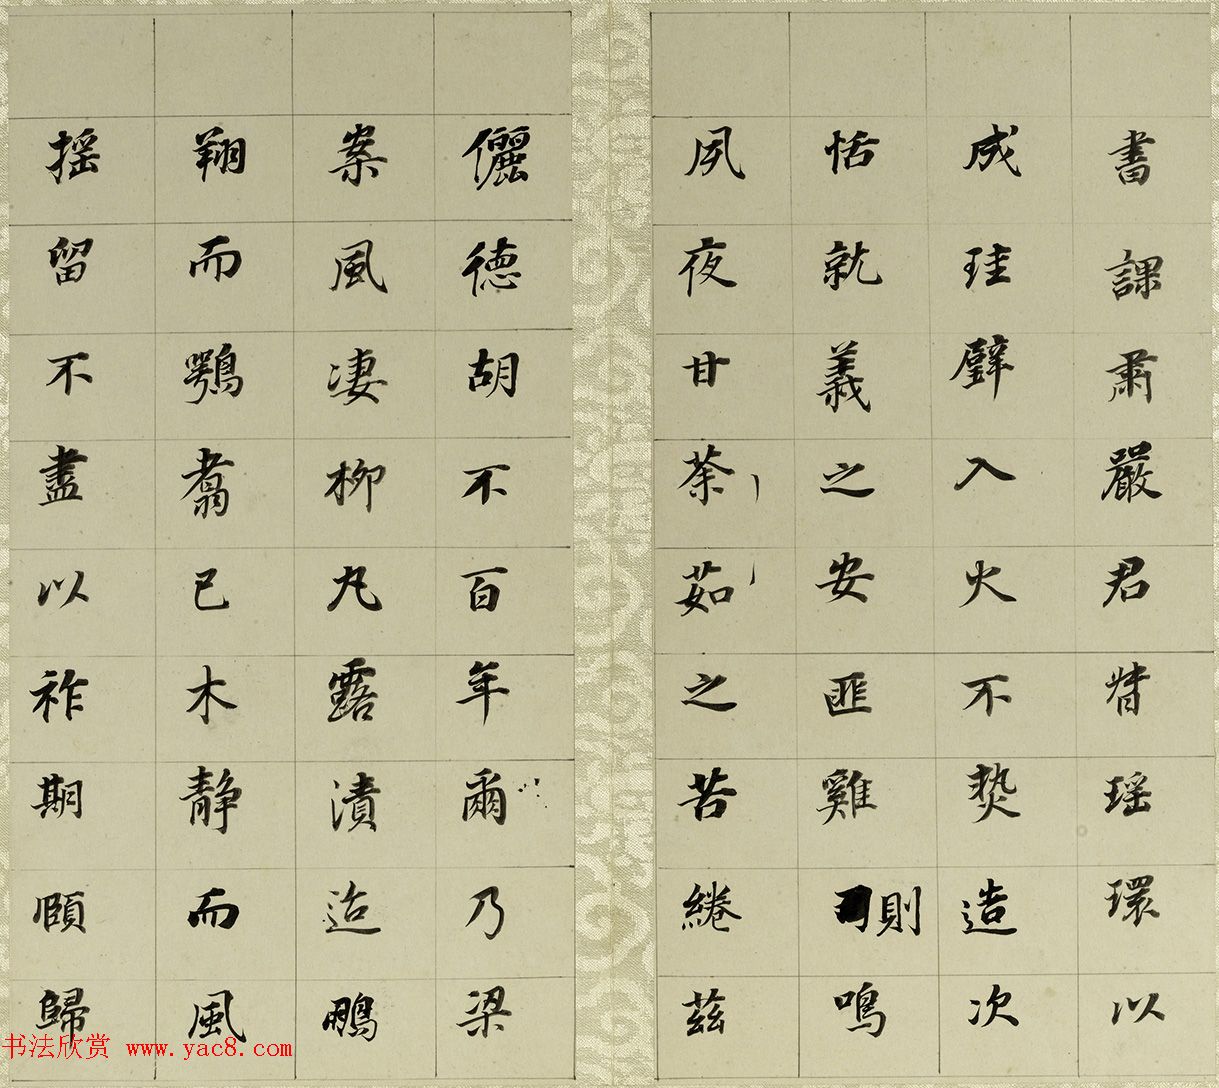 書課肅嚴君脊瑶環以
成珪璧入火不爇造次
恬就義之安匪雞則鳴
夙夜甘荼茹之苦綣茲
儷德胡不百年爾乃梁
案風凄柳丸露漬迨鵬
翔而鶚翥已木靜而風
摇留不盡以祚期頤歸
书法欣赏 www.yac8.com